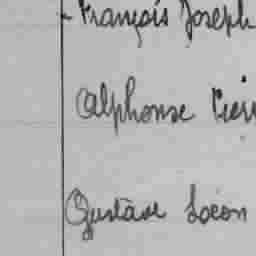 François Joseph
Alphonse
Gustave Léon